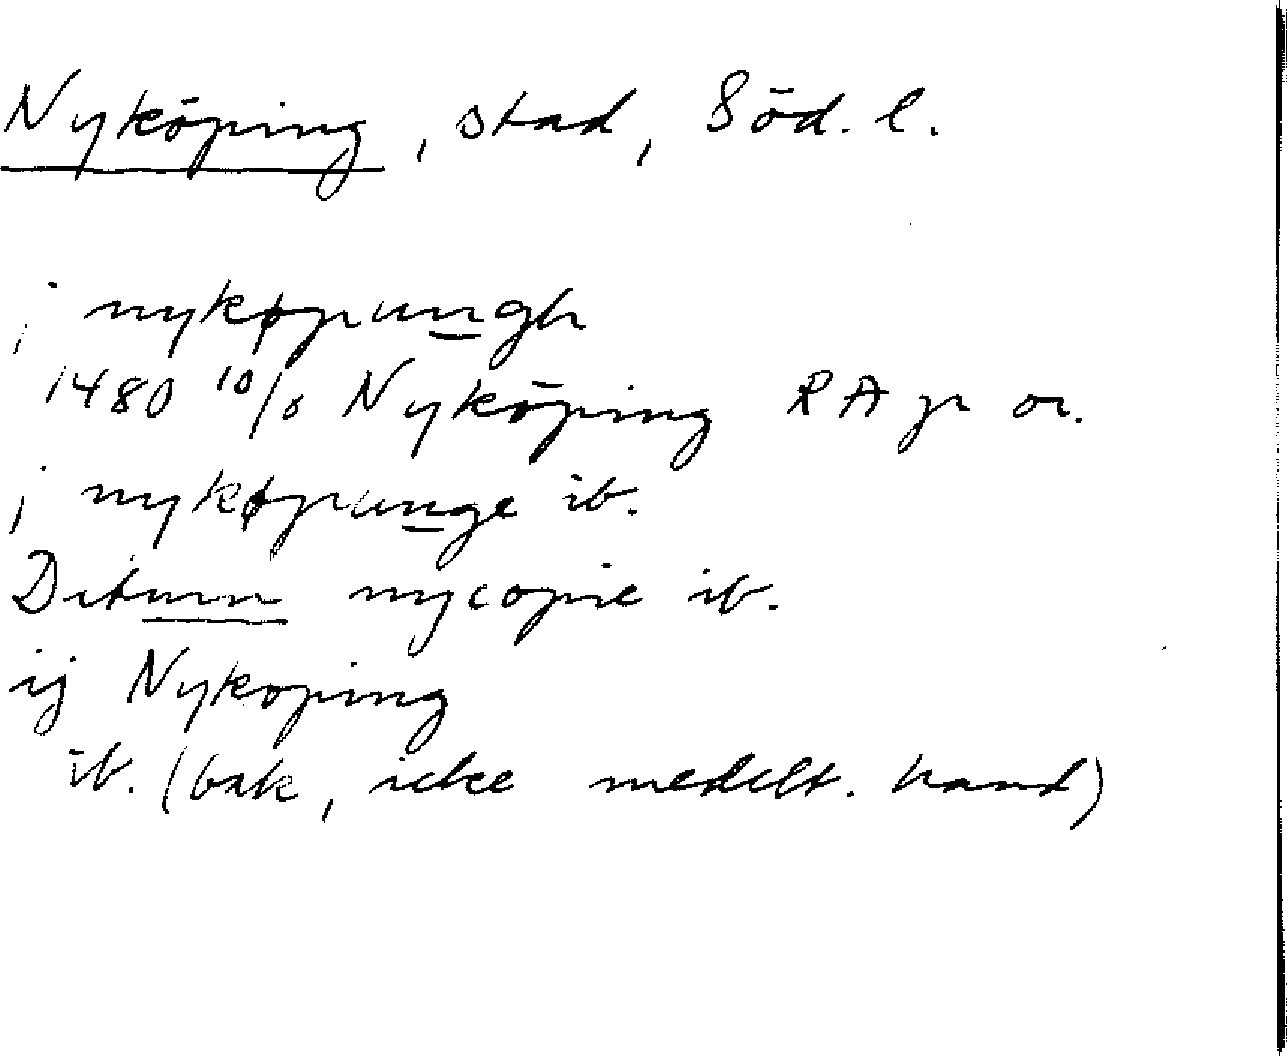 Nyköping, stad, Söd. l.
j nykøpungh
1480 10/8 Nyköping RA p or.
j nykøpunge ib.
Datum nycopie ib.
ij Nykoping
ib. (bak, icke medelt. hand)